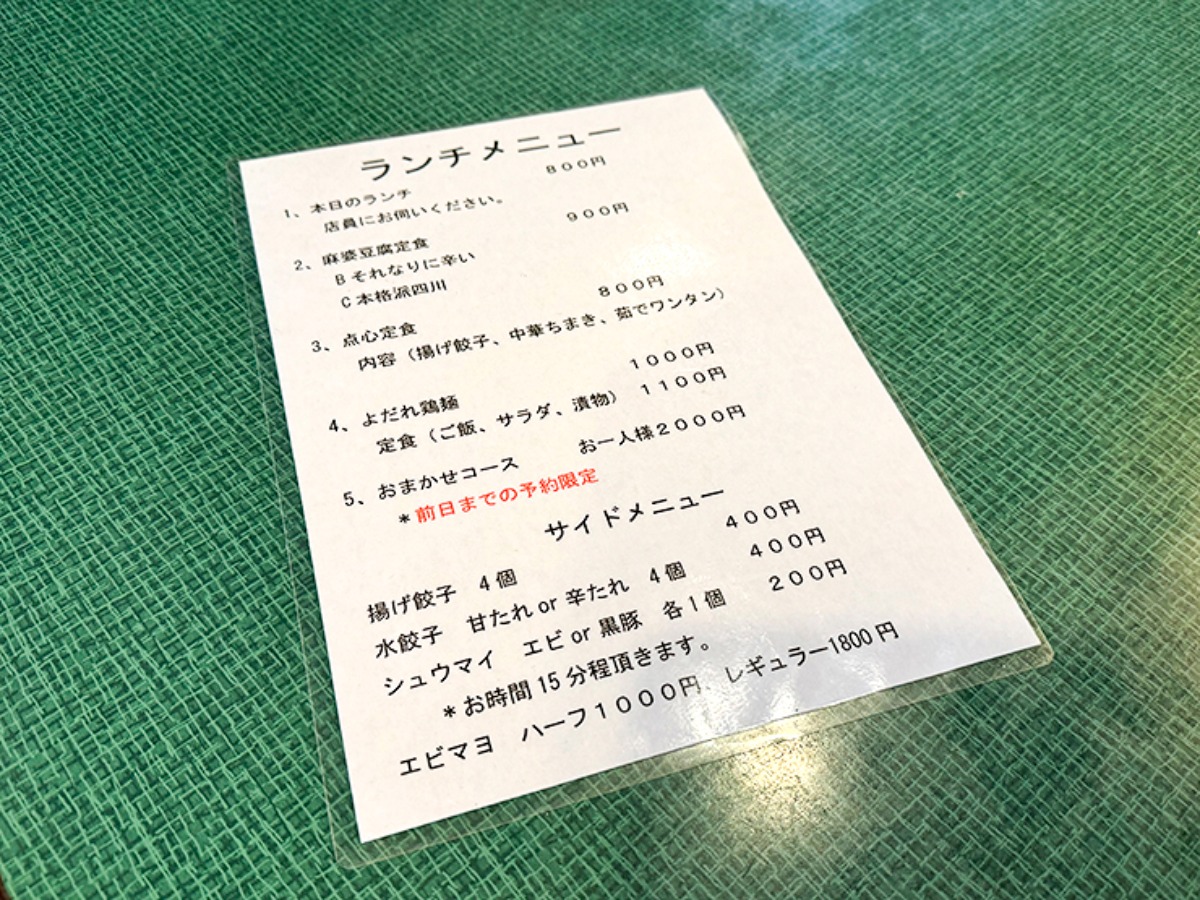 ランチメニュー
1、本日のランチ　８００円
店員にお伺いください。
2、麻婆豆腐定食　９００円
B それなりに辛い
C 本格派四川
3、点心定食　８００円
内容（揚げ餃子、中華ちまき、茹でワンタン）
4、よだれ鶏麺　１０００円
定食（ご飯、サラダ、漬物）１１００円
5、おまかせコース　お一人様２０００円
＊前日までの予約限定
サイドメニュー
揚げ餃子　4個　４００円
水餃子　甘たれ or 辛たれ　4個　４００円
シュウマイ　エビ or 黒豚　各1個　２００円
＊お時間 15 分程頂きます。
エビマヨ　ハーフ１０００円　レギュラー1800 円